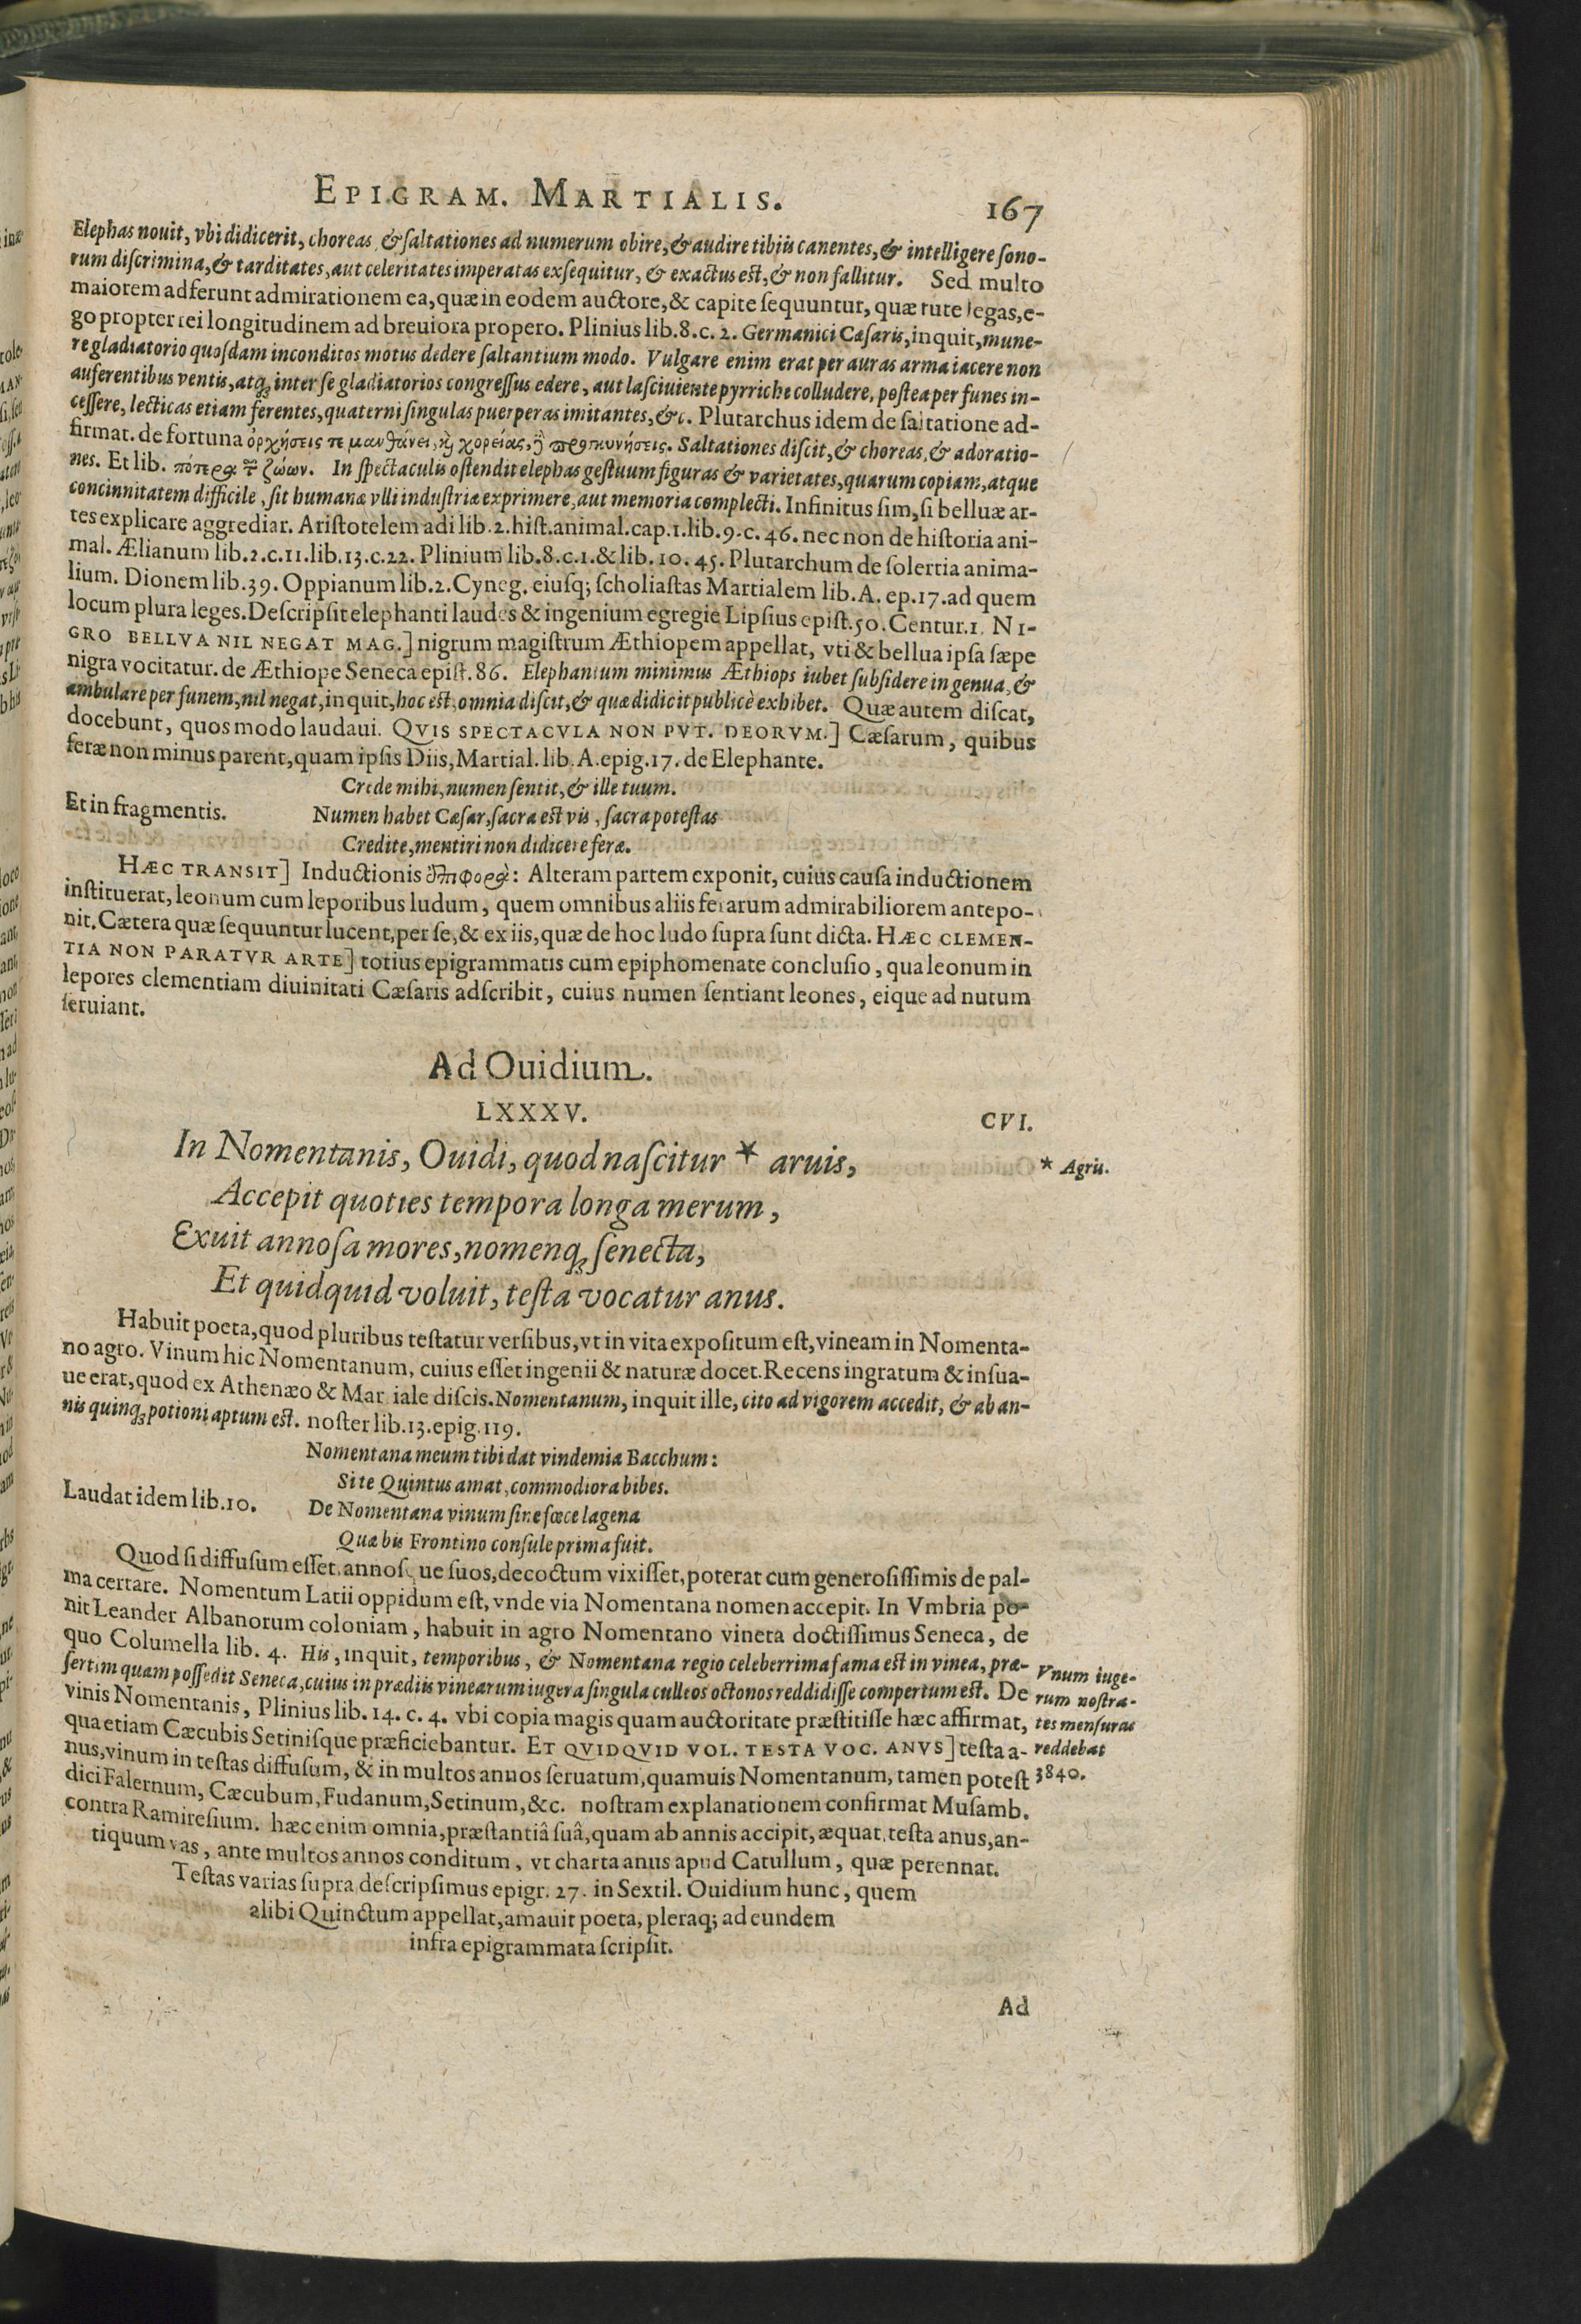 EPIGRAM. MARTIALIS. 167
Elephas nouit, vbi didicerit, choreas, & ſaltationes ad numerum obire, & audire tibiis canentes, & intelligere ſono-
rum diſcrimina, & tarditates, aut celeritates imperatas exſequitur, & exactus est, & non fallitur. Sed multo
maiorem adferunt admirationem ea, quæ in eodem auctore, & capite ſequuntur, quæ tute legas, e-
go propter rei longitudinem ad breuiora propero. Plinius lib.8.c.2. Germanici Cæſaris, inquit, mune-
re gladiatorio quoſdam inconditos motus dedere ſaltantium modo. Vulgare enim erat per auras arma iacere non
auferentibus ventis, atq; inter ſe gladiatorios congreſſus edere, aut laſciuiente pyrriche colludere, poſtea per funes in-
ceſſere, lecticas etiam ferentes, quaterni ſingulas puerperas imitantes, &c. Plutarchus idem de ſaltatione ad-
firmat. de fortuna ὀρχήσεις τε μανθάνει, καὶ χορείας, καὶ προσκυνήσεις. Saltationes diſcit, & choreas, & adoratio-
nes. Et lib. πότερα τῶν ζώων. In ſpectaculis oſtendit elephas geſtuum figuras & varietates, quarum copiam, atque
concinnitatem difficile, ſit humanæ vlli induſtriæ exprimere, aut memoria complecti. Infinitus ſim, ſi belluæ ar-
tes explicare aggrediar. Ariſtotelem adi lib.2.hiſt.animal.cap.1.lib.9.c.46. nec non de hiſtoria ani-
mal. Ælianum lib.2.c.11.lib.13.c.22. Plinium lib.8.c.1.& lib.10.45. Plutarchum de ſolertia anima-
lium. Dionem lib.39. Oppianum lib.2. Cyneg. eiuſq; ſcholiaſtas Martialem lib.A. ep.17. ad quem
locum plura leges. Deſcripſit elephanti laudes & ingenium egregie Lipſius epiſt.50. Centur.1. NI-
GRO BELLVA NIL NEGAT MAG.] nigrum magiſtrum Æthiopem appellat, vti & bellua ipſa ſæpe
nigra vocitatur. de Æthiope Seneca epiſt.86. Elephantum minimus Æthiops iubet ſubſidere in genua, &
ambulare per funem, nil negat, inquit, hoc est, omnia diſcit, & quæ didicit publicè exhibet. Quæ autem diſcat,
docebunt, quos modo laudaui. QVIS SPECTACVLA NON PVT. DEORVM.] Cæſarum, quibus
feræ non minus parent, quam ipſis Diis, Martial. lib. A. epig.17. de Elephante.
Crede mihi, numen ſentit, & ille tuum.
Et in fragmentis. Numen habet Cæſar, ſacra est vis, ſacra poteſtas
Credite, mentiri non didicere feræ.
HÆC TRANSIT] Inductionis ἐπιφορὰ: Alteram partem exponit, cuius cauſa inductionem
inſtituerat, leonum cum leporibus ludum, quem omnibus aliis ferarum admirabiliorem antepo-
nit. Cætera quæ ſequuntur lucent, per ſe, & ex iis, quæ de hoc ludo ſupra ſunt dicta. HÆC CLEMEN-
TIA NON PARATVR ARTE] totius epigrammatis cum epiphomenate concluſio, qua leonum in
lepores clementiam diuinitati Cæſaris adſcribit, cuius numen ſentiant leones, eique ad nutum
ſeruiant.
Ad Ouidium.
LXXXV. CVI.
In Nomentanis, Ouidi, quod naſcitur * aruis, * Agris.
Accepit quoties tempora longa merum,
Exuit annoſa mores, nomenq; ſenecta,
Et quidquid voluit, teſta vocatur anus.
Habuit poeta, quod pluribus teſtatur verſibus, vt in vita expoſitum eſt, vineam in Nomenta-
no agro. Vinum hic Nomentanum, cuius eſſet ingenii & naturæ docet. Recens ingratum & inſua-
ue erat, quod ex Athenæo & Mar iale diſcis. Nomentanum, inquit ille, cito ad vigorem accedit, & ab an-
nis quinq; potioni aptum est. noſter lib.13.epig.119.
Nomentana meum tibi dat vindemia Bacchum:
Si te Quintus amat, commodiora bibes.
Laudat idem lib.10. De Nomentana vinum ſine fæce lagena
Quæ bis Frontino conſule prima fuit.
Quod ſi diffuſum eſſet, annoſque ſuos, decoctum vixiſſet, poterat cum generoſiſſimis de pal-
ma certare. Nomentum Latii oppidum eſt, vnde via Nomentana nomen accepit. In Vmbria po-
nit Leander Albanorum coloniam, habuit in agro Nomentano vineta doctiſſimus Seneca, de
quo Columella lib. 4. His, inquit, temporibus, & Nomentana regio celeberrima fama est in vinea, præ-
ſertim quam poſſedit Seneca, cuius in prædiis vinearum iugera ſingula culleos octonos reddidiſſe compertum est. De
vinis Nomentanis, Plinius lib. 14. c. 4. vbi copia magis quam auctoritate præſtitiſſe hæc affirmat,
qua etiam Cæcubis Setiniſque præficiebantur. ET QVIDQVID VOL. TESTA VOC. ANVS] teſta a-
nus, vinum in teſtas diffuſum, & in multos annos ſeruatum, quamuis Nomentanum, tamen poteſt
dici Falernum, Cæcubum, Fudanum, Setinum, &c. noſtram explanationem confirmat Muſamb.
contra Ramireſium. hæc enim omnia, præſtantiâ ſuâ, quam ab annis accipit, æquat, teſta anus, an-
tiquum vas, ante multos annos conditum, vt charta anus apud Catullum, quæ perennat.
Teſtas varias ſupra deſcripſimus epigr. 27. in Sextil. Ouidium hunc, quem
alibi Quinctum appellat, amauit poeta, pleraq; ad eundem
infra epigrammata ſcripſit.
Vnum iuge-
rum noſtra-
tes menſuras
reddebat
3840.
Ad